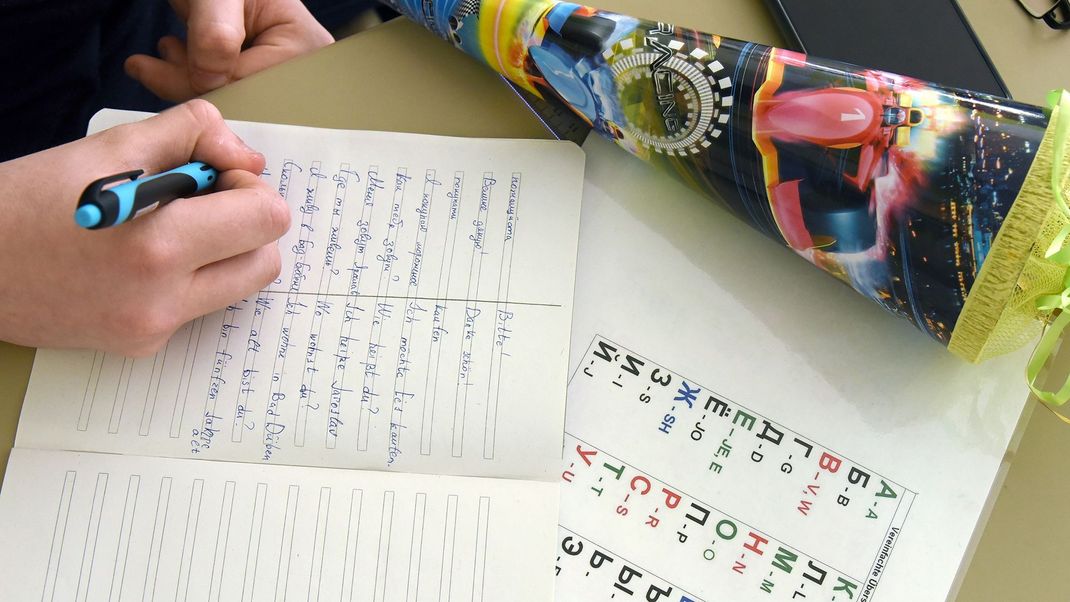 пожалуйста Bitte!
Большое Danke schön!
покупать kaufen
Я покупаю мороженое Ich möchte Eis kaufen.
Как тебя зовут? Wie heißt du?
Меня зовут Ich heiße Jaroslav
Где ты живёшь? Wo wohnst du?
Я живу в Бад-Дюбене Ich wohne in Bad Düben
Сколько Wie alt bist du?
Ich bin fünfzen Jahre alt
RACING
1
Vereinfachte
А - A
Б - B
В - V, W
Г - G
Д - D
Е - JE, E
Ё - JO
Ж - SH
З - S
И - I
Й - J
К -
Л - L
М - M
Н - N
О - O
П - P
Р - R
С - S
Т - T
У - U
Э -
Ы
Ь